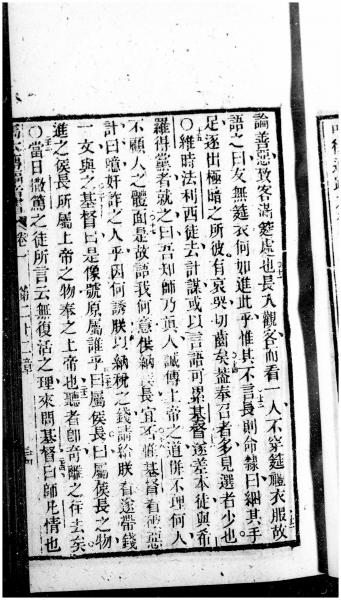 論善惡致客滿筵處也長入觀客而看一人不穿筵禮衣服故
語之曰友無筵衣何如進此乎惟其不言長則命隸曰綑其手
足逐出極暗之所彼有哀哭切齒矣葢奉召者多見選者少也
○維時法利西徒去計謀或以言語可累基督遂差本徒與希
羅得黨者就之曰吾知師乃真人誠傳上帝之道併不理何人
不顧人之體面是故語我何意供納 長宜否惟基督看 惡
計曰噫奸詐之人乎因何誘朕以納稅之錢請給朕看遂帶錢
一文與之基督曰是像號原屬誰乎曰屬侯長曰屬侯長之物
進之侯長所屬上帝之物奉之上帝也聽者即奇離之往去矣
○當日撒篤之徒所言云無復活之理來問基督曰師凢情也
卷一 第二十二章